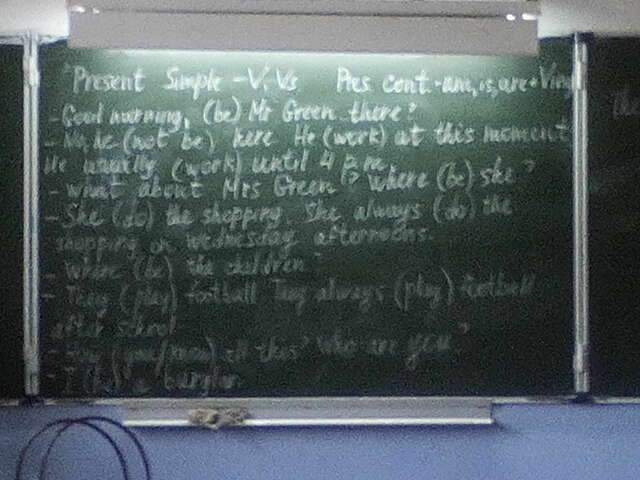 Present Simple - V, Vs Pres. cont. - am, is, are + Ving
- Good morning, (be) Mr Green there?
- No, he (not be) here He (work) at this moment
He usually (work) until 4 p.m.
- What about Mrs Green? Where (be) she?
- She (do) the shopping. She always (do) the
shopping on Wednesday afternoons.
- Where (be) the children?
- They (play) football They always (play) football
after school
- How (you/know) all this? Who are you?
- I (be) a burglar